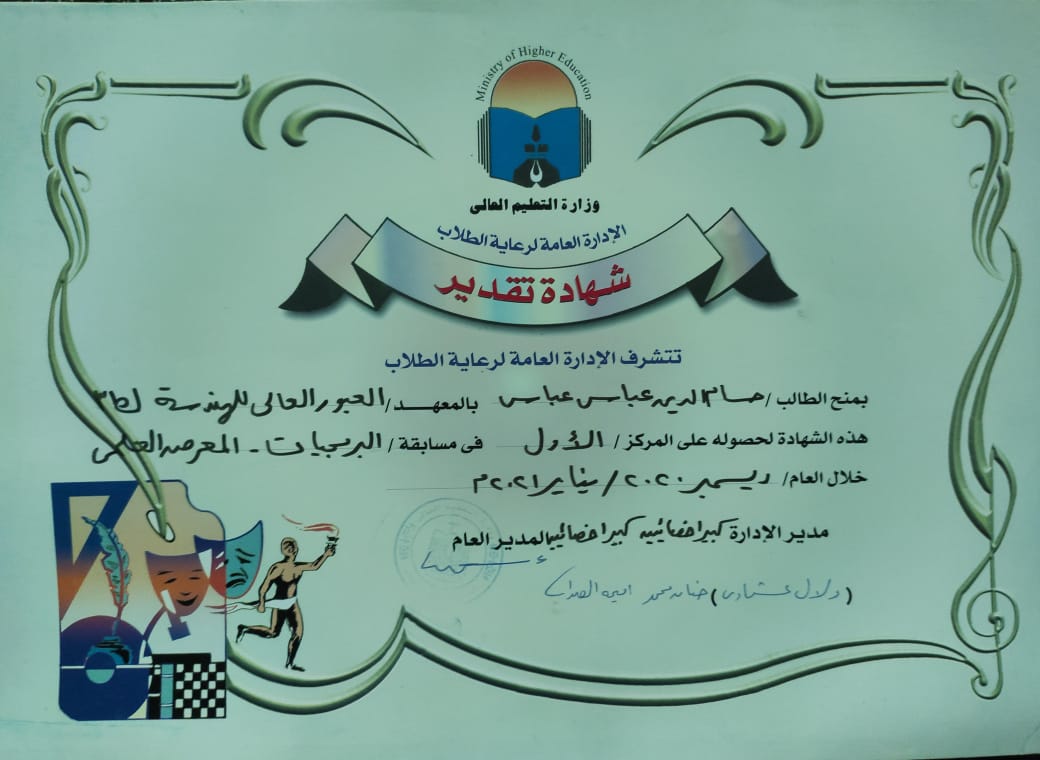 Ministry of Higher Education
وزارة التعليم العالى
الإدارة العامة لرعاية الطلاب
شهادة تقدير
تتشرف الإدارة العامة لرعاية الطلاب
بمنح الطالب / حسام الدين عباس عباس بالمعهد / العبور العالى للهندسة
هذه الشهادة لحصوله على المركز / الأول فى مسابقة / البرمجيات - المعرض العلمى
خلال العام / ديسمبر ٢٠٢٠ / يناير ٢٠٢١ م
مدير الإدارة كبير اخصائيين كبير اخصائيين المدير العام